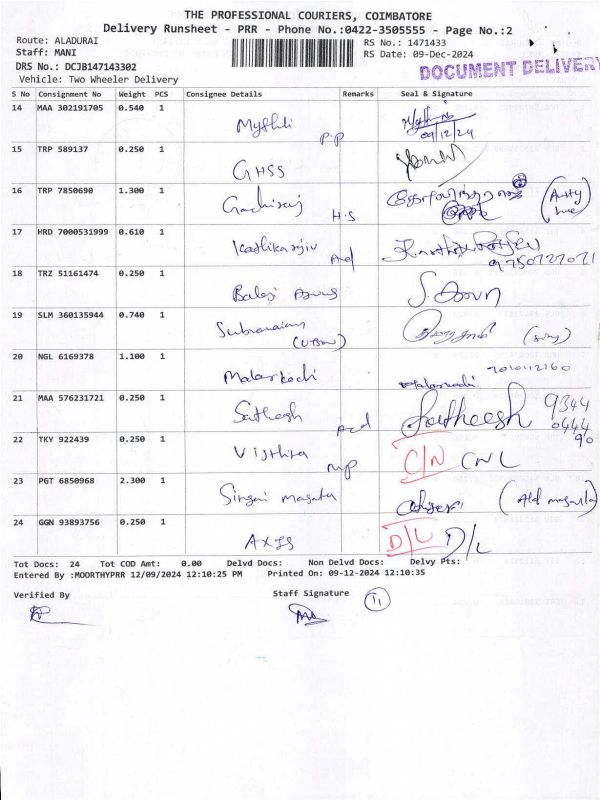 THE PROFESSIONAL COURIERS, COIMBATORE
Delivery Runsheet - PRR - Phone No.:0422-3505555 - Page No.:2
Route: ALADURAI RS No.: 1471433
Staff: MANI RS Date: 09-Dec-2024
DRS No.: DCJB147143302 DOCUMENT DELIVERY
Vehicle: Two Wheeler Delivery
S No Consignment No Weight PCS Consignee Details Remarks Seal & Signature
14 MAA 302191705 0.540 1 Mythili P.P 09/12/24
15 TRP 589137 0.250 1 GHSS
16 TRP 7850690 1.300 1 H.S
17 HRD 7000531999 0.610 1 Karthikarajiv 9750727071
18 TRZ 51161474 0.250 1 Balaji
19 SLM 360135944 0.740 1
20 NGL 6169378 1.100 1 Malarkodi Malarkodi 7010112160
21 MAA 576231721 0.250 1 Sathesh Satheesh 9344
0444
90
22 TKY 922439 0.250 1 C/N CNL
23 PGT 6850968 2.300 1 Singai Masala
24 GGN 93893756 0.250 1 AXIS D/L D/L
Tot Docs: 24 Tot COD Amt: 0.00 Delvd Docs: Non Delvd Docs: Delvy Pts:
Entered By :MOORTHYPRR 12/09/2024 12:10:25 PM Printed On: 09-12-2024 12:10:35
Verified By Staff Signature 11